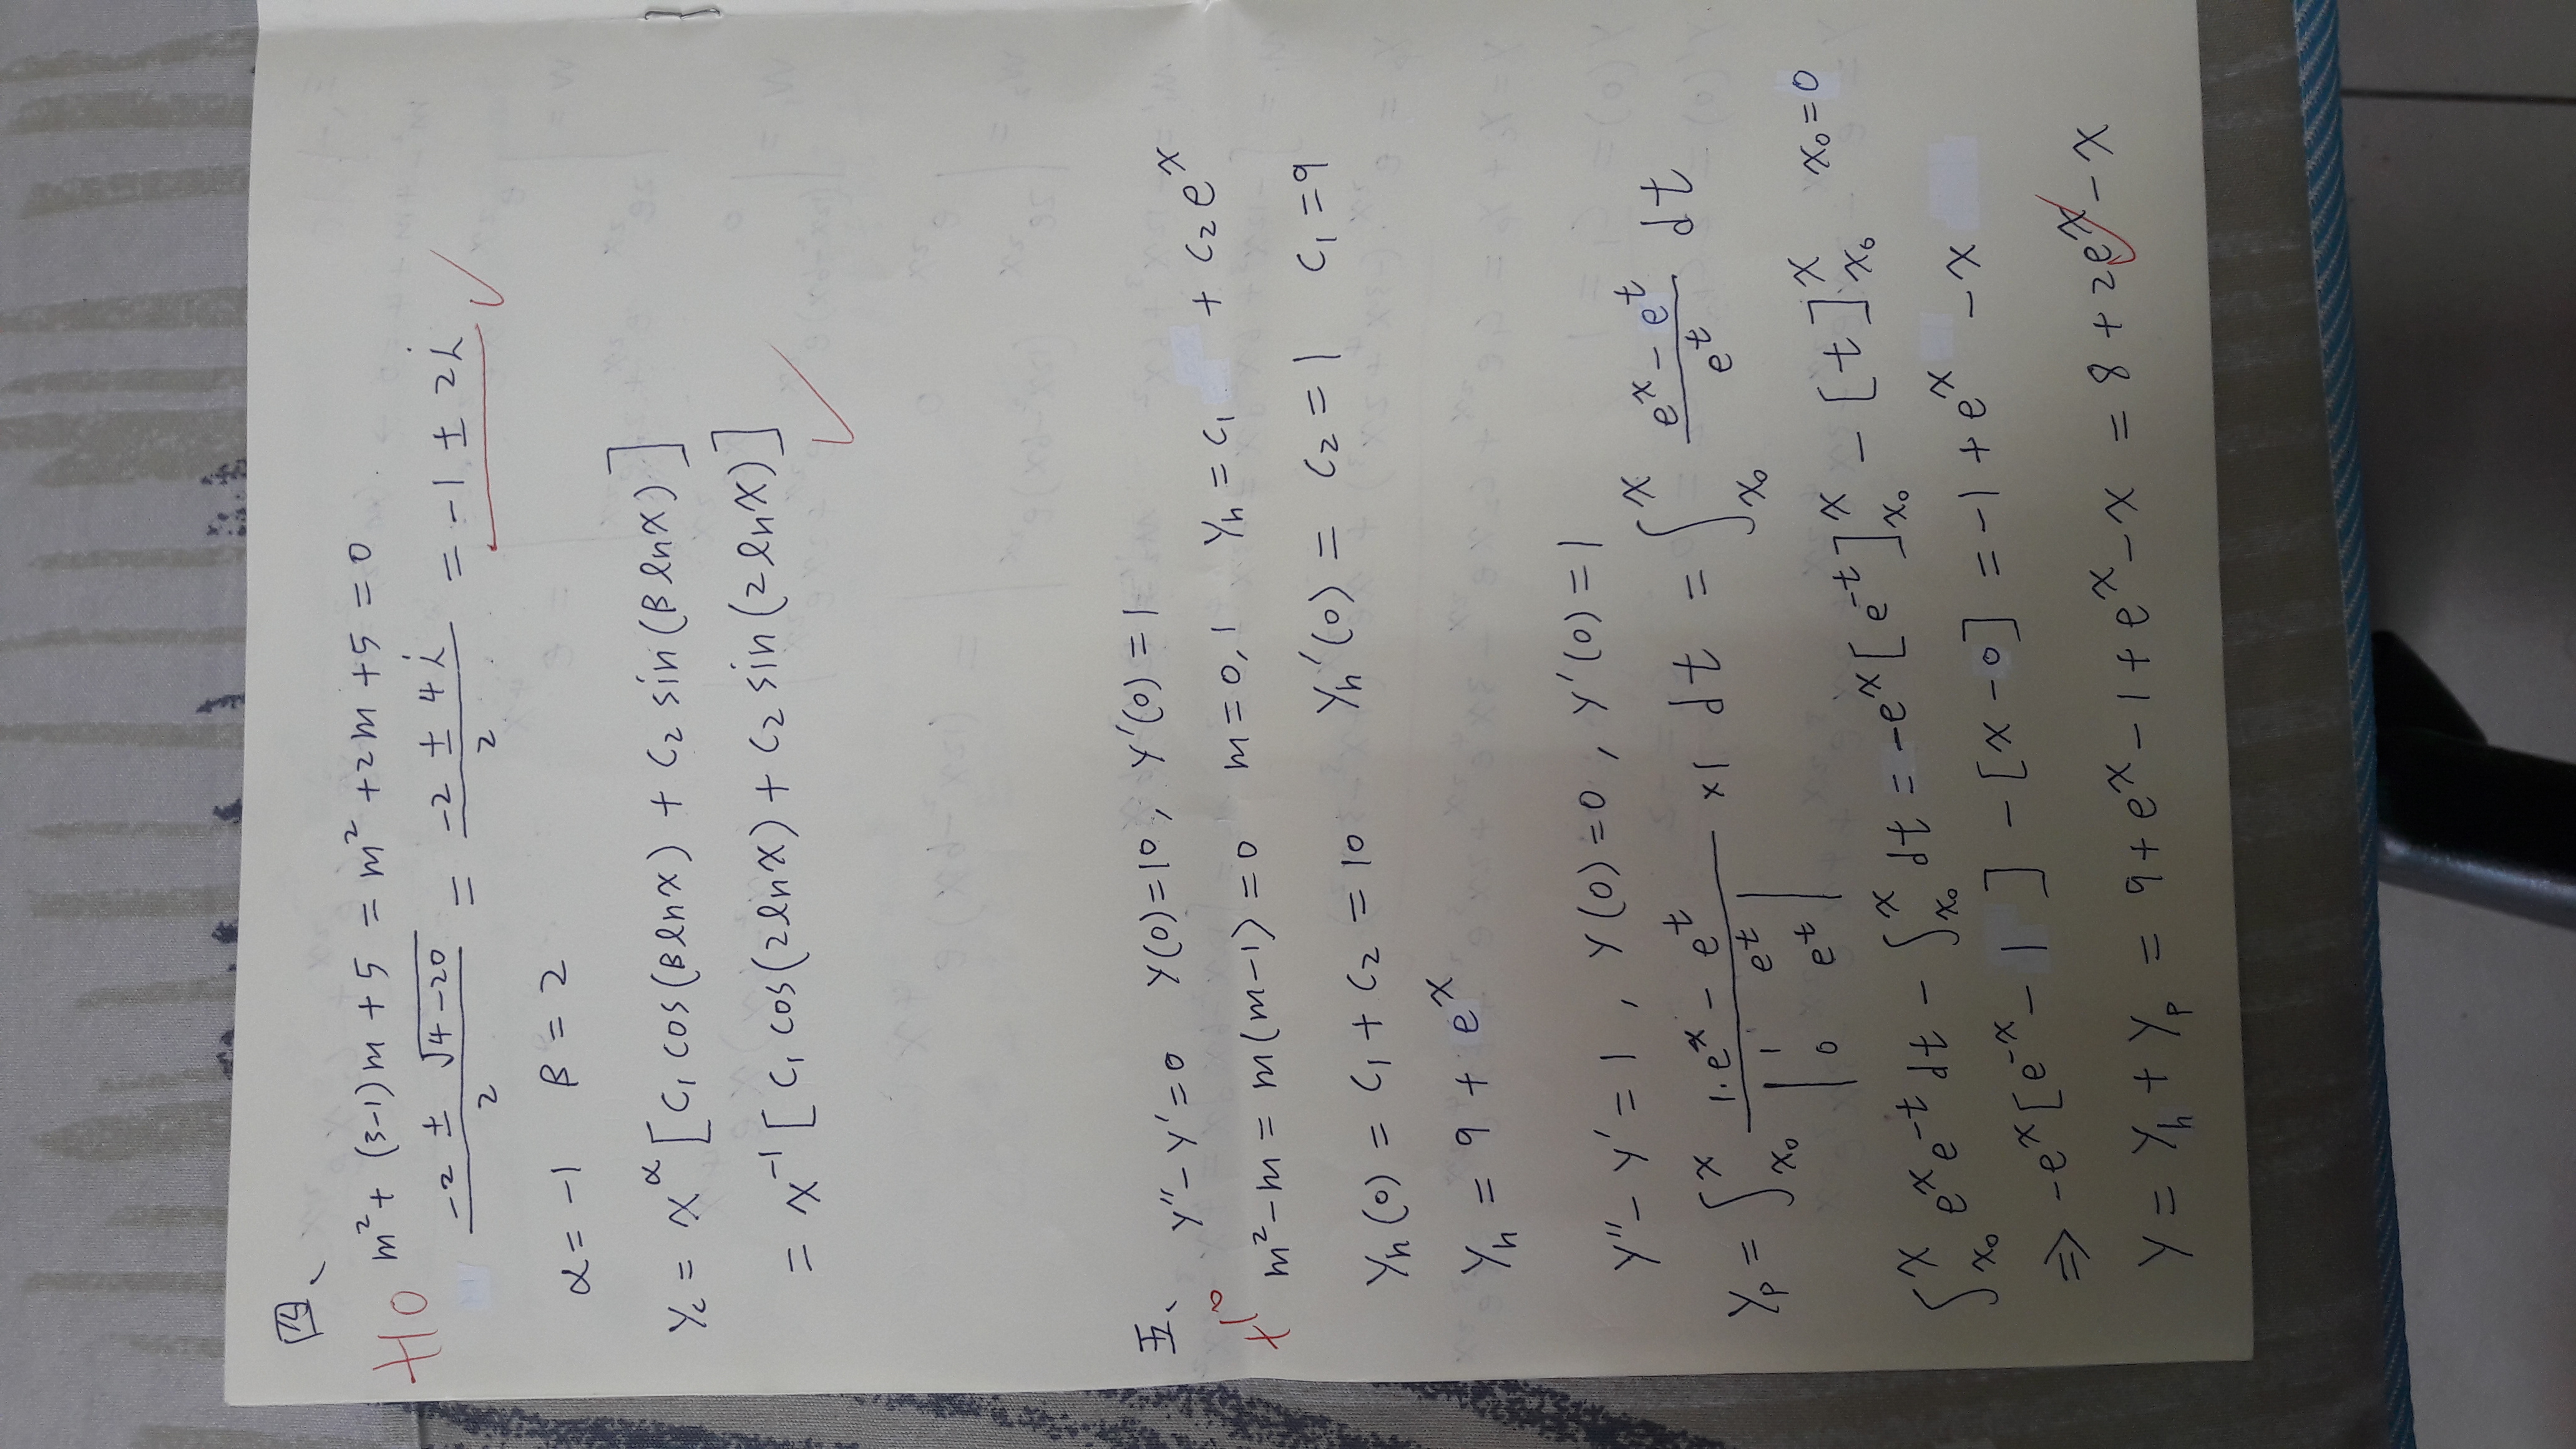 四、
+10 m² + (3-1)m + 5 = m² + 2m + 5 = 0
(-2 ± √(4-20))/2 = (-2 ± 4i)/2 = -1 ± 2i ✓
α = -1  β = 2
Yc = x^α [C₁ cos(βlnx) + C₂ sin(βlnx)]
= x⁻¹ [C₁ cos(2lnx) + C₂ sin(2lnx)] ✓
五、 Y'' - Y' = 0  Y(0) = 10, Y'(0) = 1
+10 m² - m = m(m-1) = 0  m = 0, 1  Yh = C₁ + C₂e^x
Yh(0) = C₁ + C₂ = 10  Yh'(0) = C₂ = 1  C₁ = 9
Yh = 9 + e^x
Y'' - Y' = 1, Y(0) = 0, Y'(0) = 1
Yp = ∫_{x₀}^{x} (1·e^x - e^t)/|1 e^t; 0 e^t| ×1 dt = ∫_{x₀}^{x} (e^x - e^t)/e^t dt
∫_{x₀}^{x} e^x e^{-t} dt - ∫_{x₀}^{x} dt = -e^x [e^{-t}]_{x₀}^{x} - [t]_{x₀}^{x}  x₀ = 0
⇒ -e^x [e^{-x} - 1] - [x - 0] = -1 + e^x - x
Y = Yh + Yp = 9 + e^x - 1 + e^x - x = 8 + 2e^x - x ✓